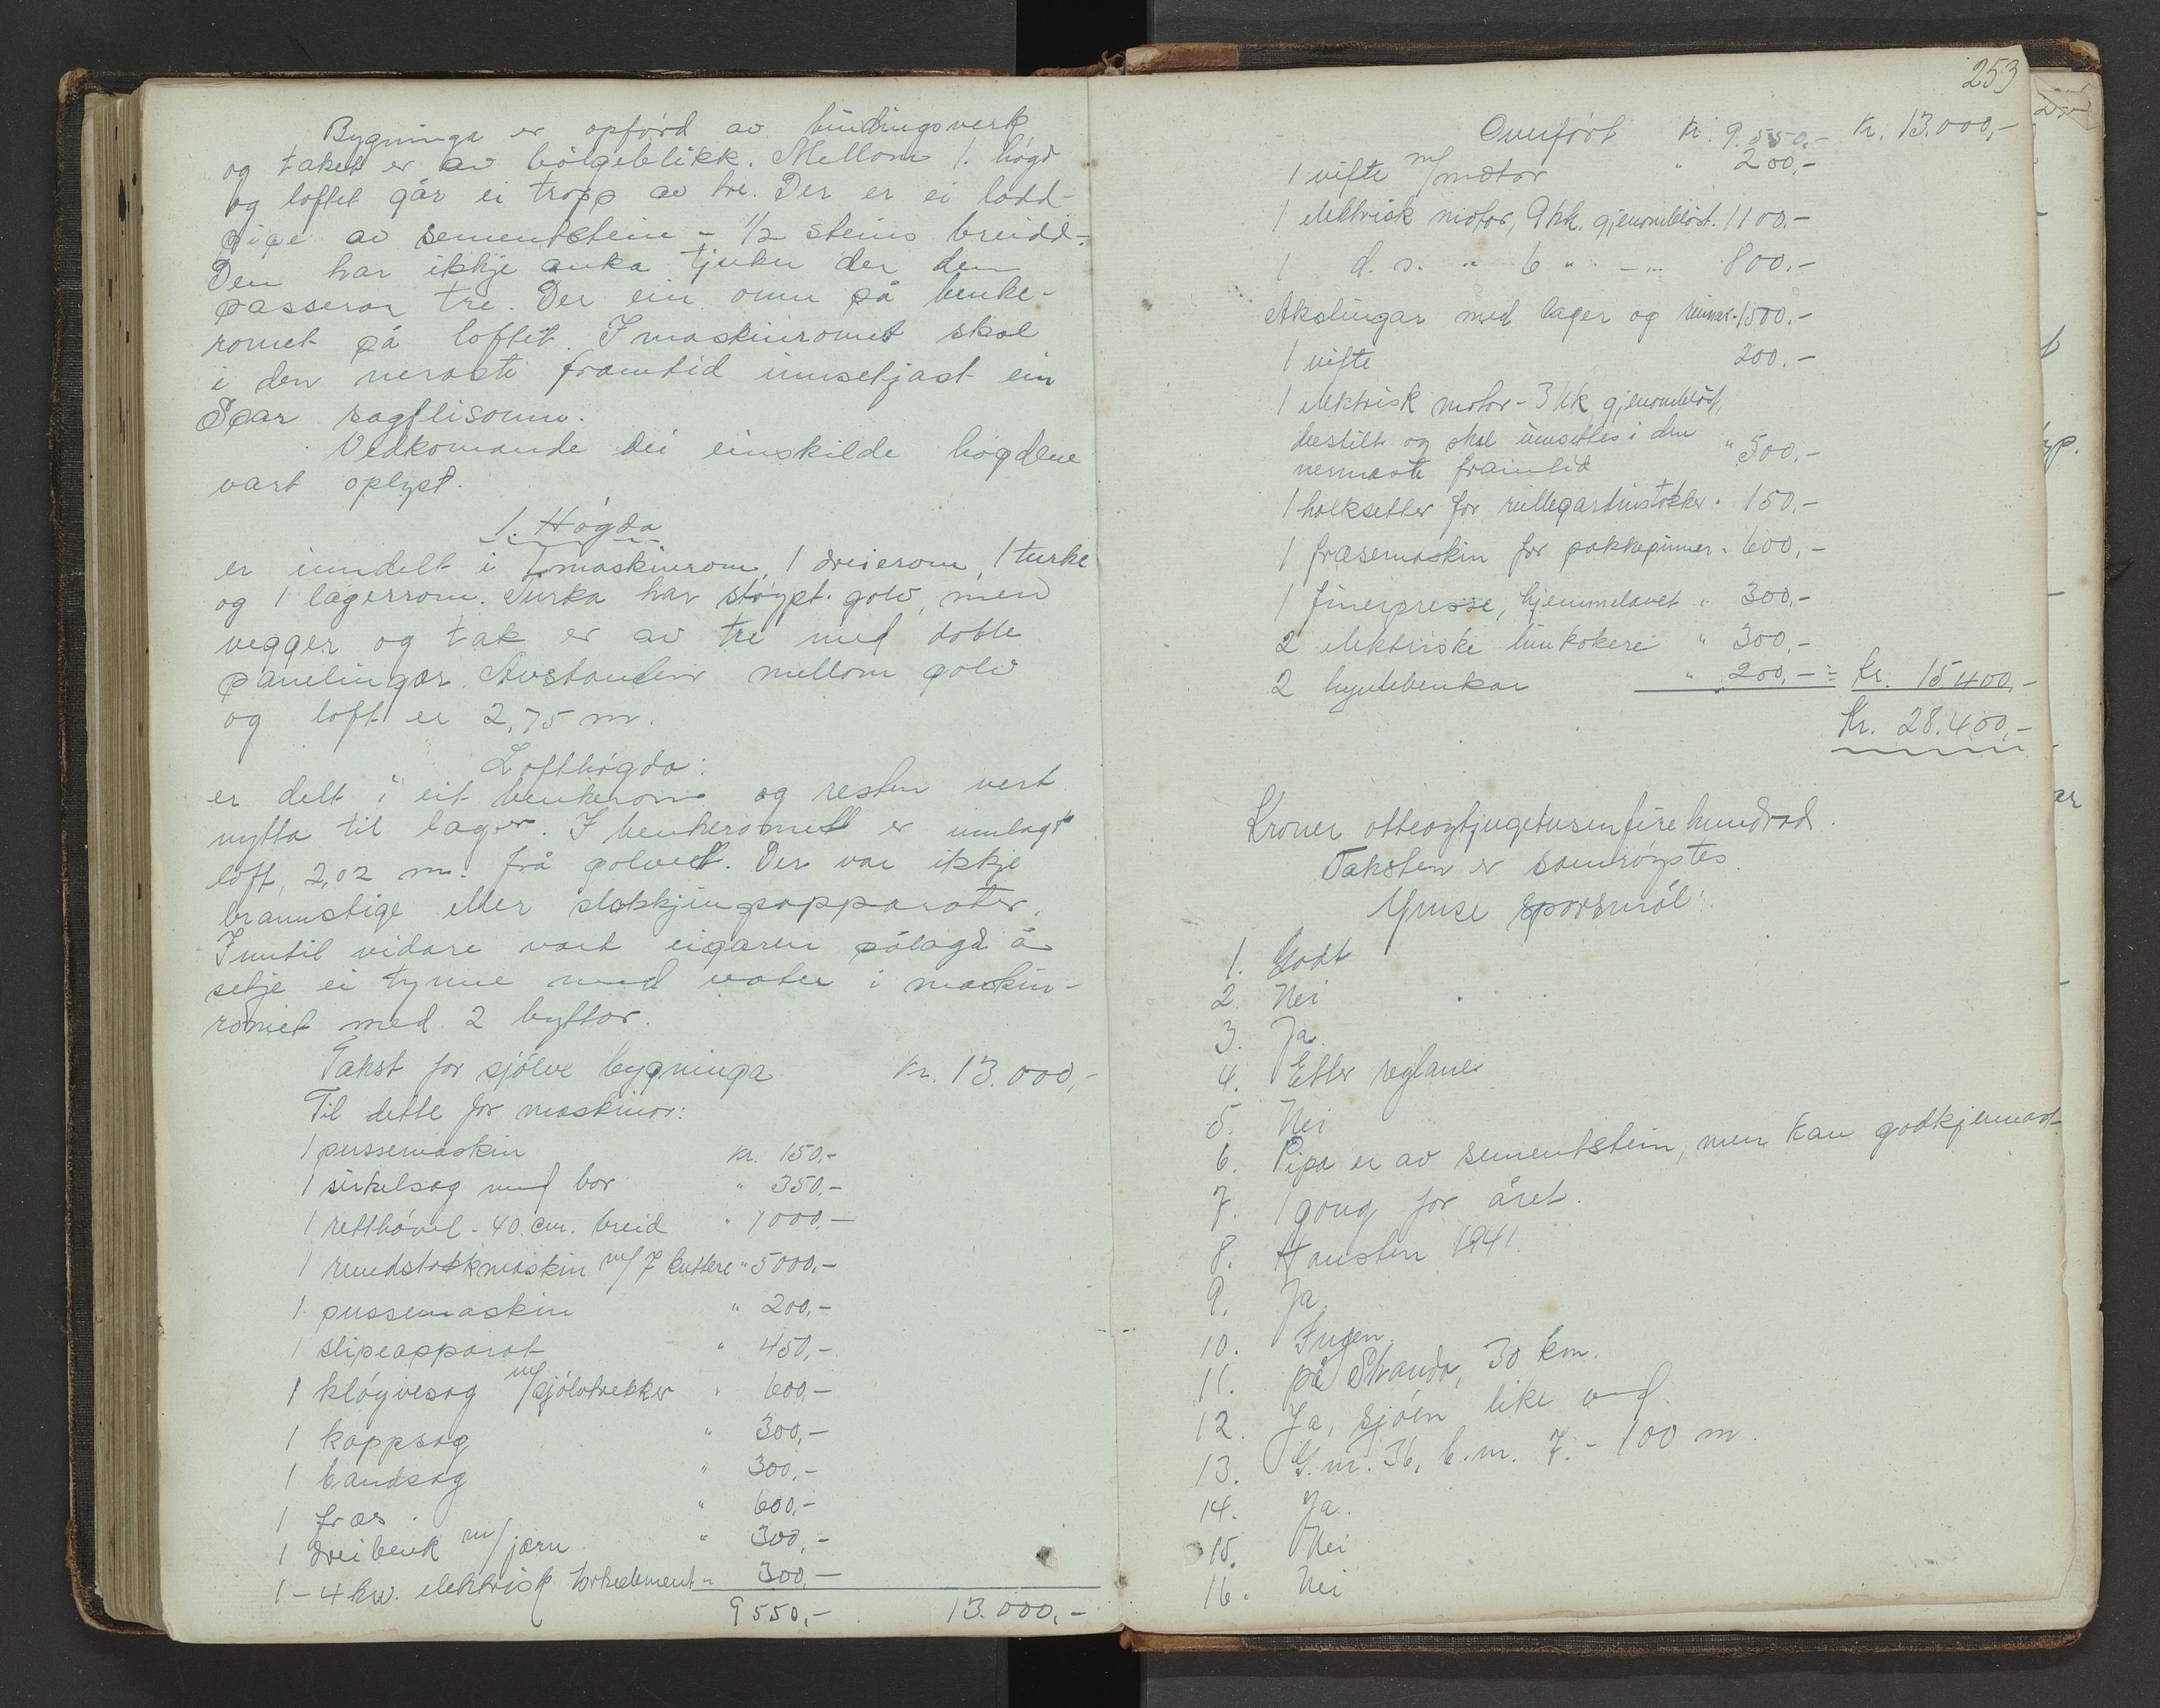 Bygninga er opförd av bindingsverk
og taket er av bölgeblikk. Mellom 1. högd
og loftet går ei tropp av tre. Der er ei lodd-
pipe av sementstein - 1/2 steins breidd.
Den har ikkje auka tjukn der den
passerar tre. Der ein omn på benke-
romet på loftet. I maskinromet skal
i den neraste framtid innsetjast ein
Spar sagflisomn.
Vedkomande dei einskilde högdene
vart oplyst.
1. Högda
er inndelt i 1 maskinrom, 1 dreierom, 1 turke
og 1 lagerrom. Turka har stöypt golv, men
vegger og tak er av tre med doble
panelingar. Avstanden mellom golv
og loft er 2,75 m.
Lofthögda:
er delt i eit benkerom og resten vert
nytta til lager. I benkeromet er innlagt
loft, 2,02 m. frå golvet. Der var ikkje
brannstige eller slökkjingsapparater.
Inntil vidare vart eigaren pålagd å
setje ei tynne med vatn i maskin-
romet med 2 byttor.
Takst for sjölve bygninga Kr. 13.000,-
Til dette for maskinor:
1 pussemaskin Kr. 150,-
1 sirkelsag med bor " 350.-
1 retthövel - 40 cm. breid " 1000.-
1 rundstokkmaskin m/ 7 kuttere " 5000,-
1 pussemaskin " 200,-
1 slipeapparat " 450,-
1 klöyvesag m/sjölvtrekker " 600,-
1 kappsag " 300,-
1 bandsag " 300,-
1 fræs " 600,-
1 dreibenk m/jarn " 300,-
1 - 4 kw. elektrisk törkeelement " 300,-
9550,- 13.000,-
253
Overfört Kr. 9.550,- Kr. 13.000,-
1 vifte m/motor " 200,-
1 elektrisk motor, 9 hk. gjenomblöst. 1100.-
1 d. o. " 6 " - " - 800.-
Akslingar med lager og reimar. 1500.-
1 vifte 200.-
1 elektrisk motor - 3 hk gjenomblöst,
bestilt og skal innsettes i den
nermaste framtid " 500,-
1 holksetter for rullegardinstokker " 150,-
1 fræsemaskin for pakkepinner " 600,-
1 finerpresse, hjemmelavet " 300,-
2 elektriske limkokere " 300,-
2 hyvlebenkar " 200,- = Kr. 15400,-
Kr. 28.400,-
Kroner otteogtjugetusenfirehundrad.
Taksten er samröystes.
Ymse sporsmål:
1. Godt
2. Nei
3. Ja.
4. Etter reglane
5. Nei
6. Pipa er av sementstein, men kan godkjennast
7. 1 gong for året.
8. Hausten 1941.
9. Ja.
10. Ingen.
11. på Stranda, 30 km.
12. Ja, sjöen like ved.
13. G.nr. 36, b.nr. 7. - 100 m.
14. Ja.
15. Nei
16. Nei